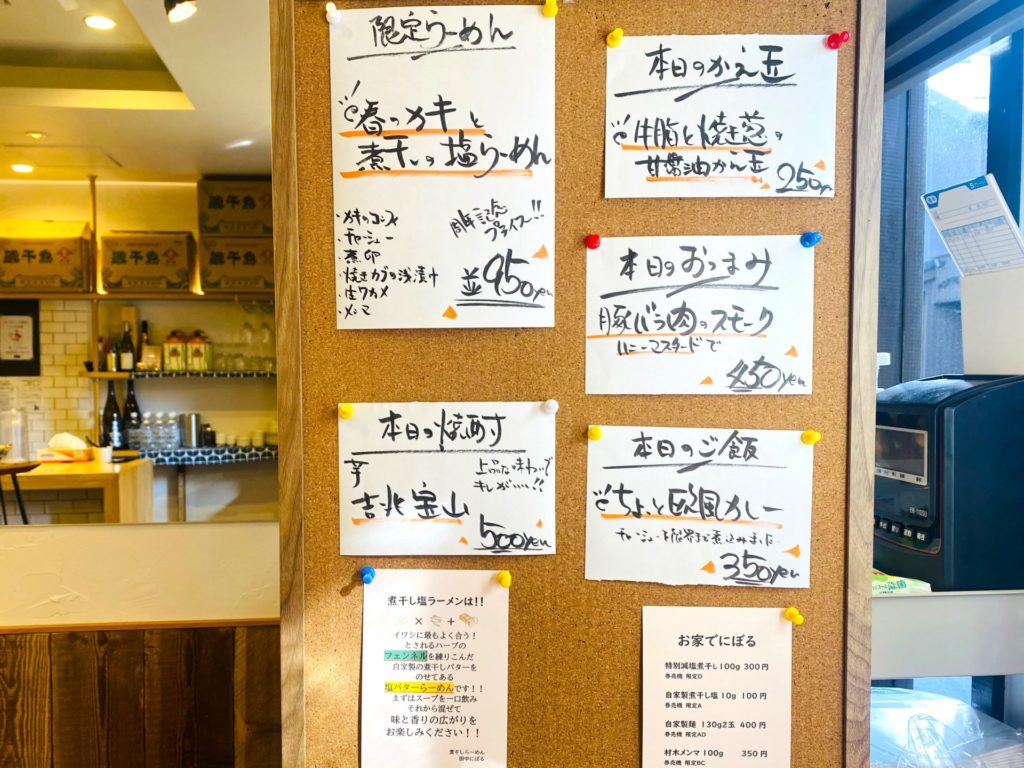 限定らーめん
春のカキと
煮干しの塩らーめん
・カキのコンフィ
・チャーシュー
・煮卵
・焼きカブの浅漬け
・生ワカメ
・メンマ
周年記念
プライス!!
並950yen
本日のかえ玉
牛脂と焼き葱の
甘醤油かえ玉
250yen
本日のおつまみ
豚バラ肉のスモーク
ハニーマスタードで
450yen
本日の焼酎
芋
吉兆宝山
上品な味わいで
キレがいい!!
500yen
本日のご飯
ちょっと欧風カレー
チャーシューを限界まで煮込みました
350yen
煮干し塩ラーメンは!!
× +
イワシに最もよく合う!
とされるハーブの
フェンネルを練りこんだ
自家製の煮干しバターを
のせてある
塩バターらーめんです!!
まずはスープを一口飲み
それから混ぜて
味と香りの広がりを
お楽しみください!!
煮干しらーめん
田中にぼる
お家でにぼる
特別減塩煮干し100g 300円
券売機 限定D
自家製煮干し塩 10g 100円
券売機 限定A
自家製麺 130g2玉 400円
券売機 限定AD
材木メンマ100g 350円
券売機 限定BC